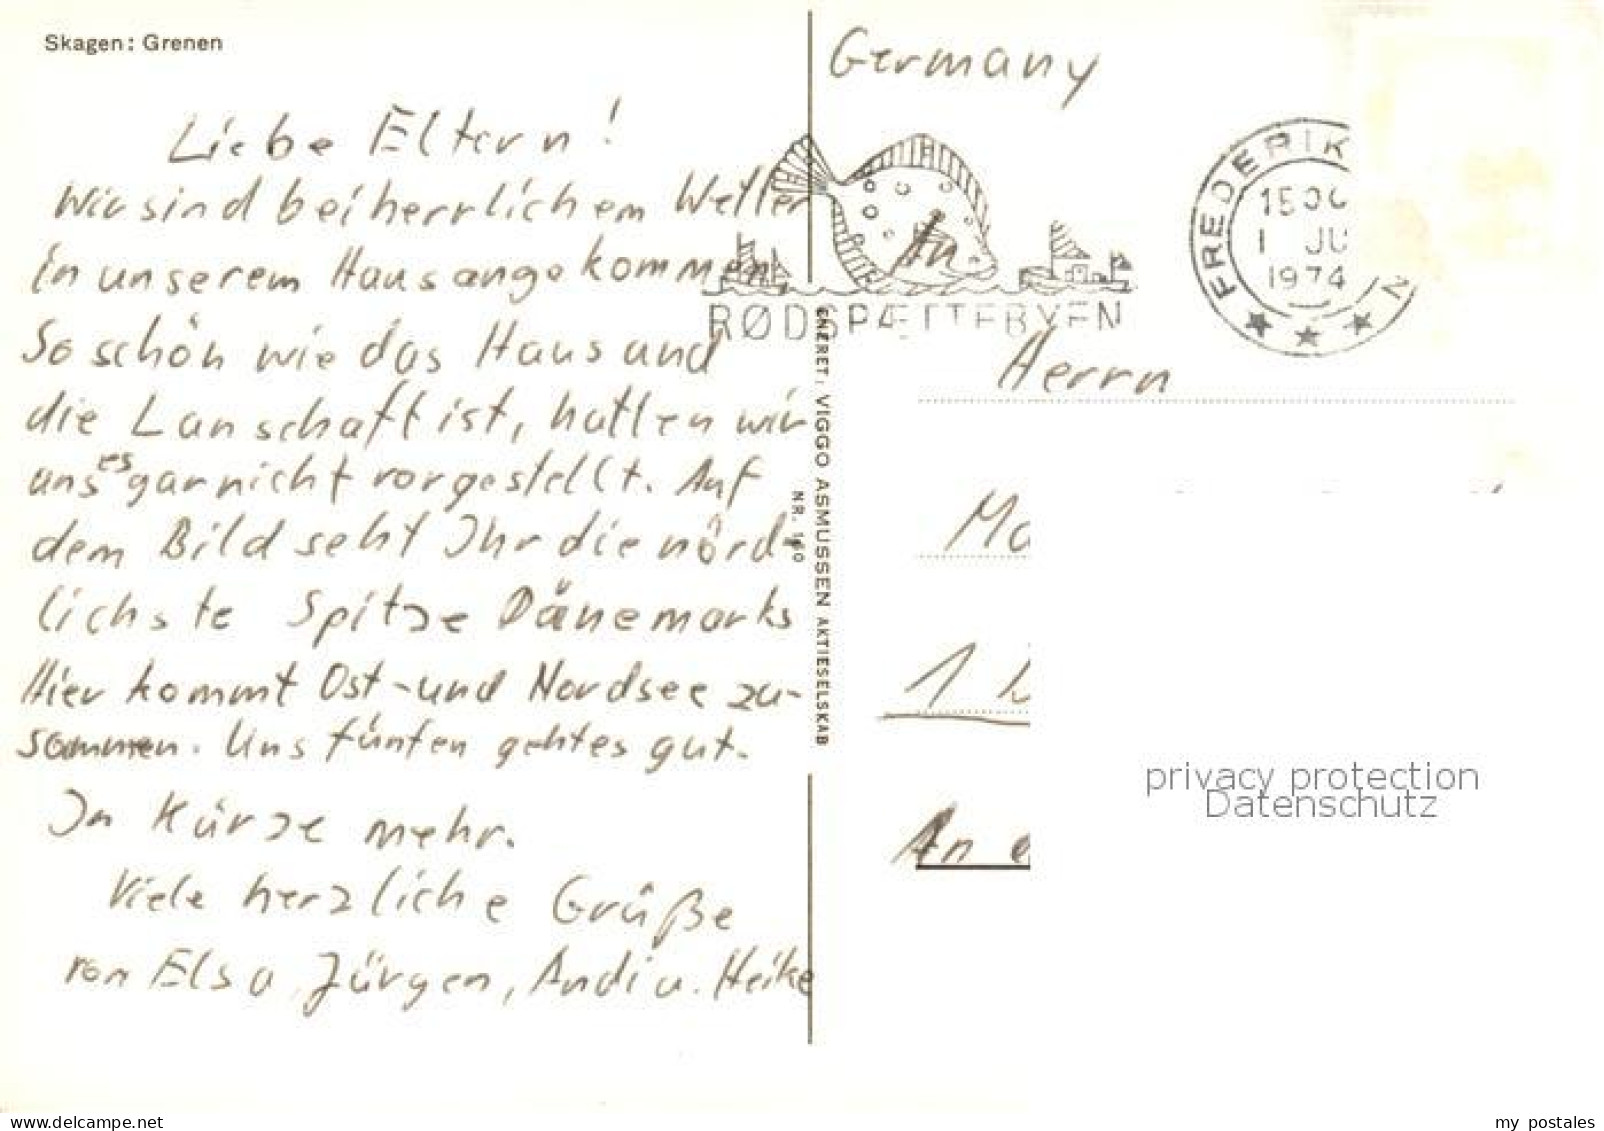 Skagen: Grenen
Liebe Eltern!
Wir sind bei herrlichem Wetter
in unserem Haus angekommen.
So schön wie das Haus und
die Lanschaft ist, hatten wir
uns es gar nicht vorgestellt. Auf
dem Bild seht Ihr die nörd-
lichste Spitze Dänemarks
Hier kommt Ost- und Nordsee zu-
sammen. Uns fünfen geht es gut.
In Kürze mehr.
Viele herzliche Grüße
von Elsa, Jürgen, Andi u. Heike
ENERET, VIGGO ASMUSSEN AKTIESELSKAB
NR. 160
Germany
RØDSPÆTTEBYEN
FREDERIK
1974
An
Herrn
Ma
1
An
privacy protection
Datenschutz
delcampe.net
my_postales